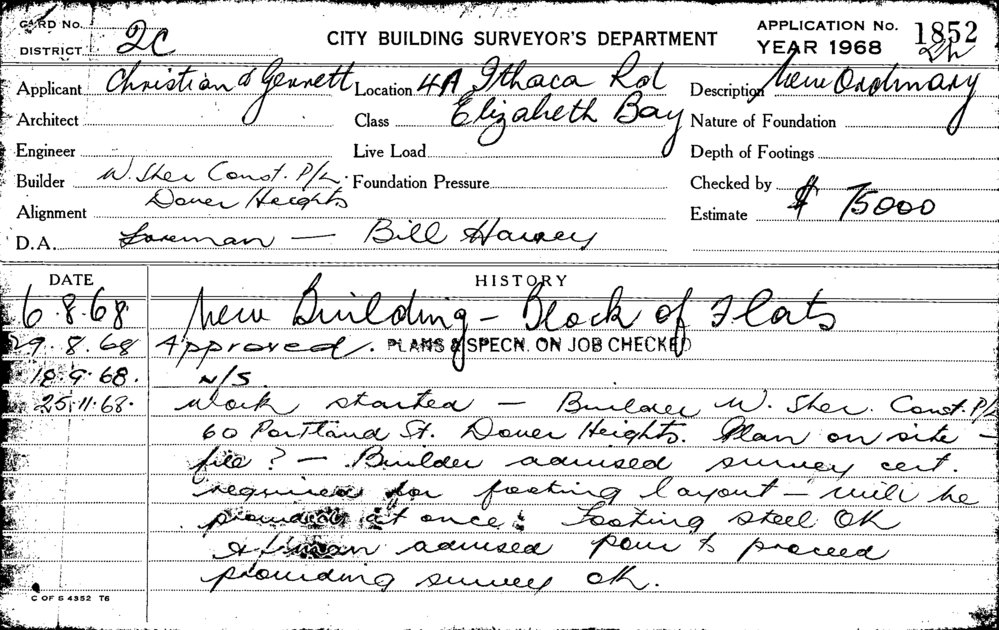 CARD No.
DISTRICT 2C
CITY BUILDING SURVEYOR'S DEPARTMENT
APPLICATION No. 1852
YEAR 1968
Applicant Christian & Gennett Location 4A Ithaca Rd Description New Ordinary
Architect Class Elizabeth Bay Nature of Foundation
Engineer Live Load Depth of Footings
Builder W. Sher Const. P/L. Foundation Pressure Checked by
Dover Heights
Alignment Estimate $ 75000
D.A. Foreman — Bill Harvey
DATE HISTORY
6.8.68 New Building - Block of Flats
29.8.68 Approved. PLANS & SPECN. ON JOB CHECKED
18.9.68. N/S.
25.11.68. Work started — Builder W. Sher. Const. P/L
60 Portland St. Dover Heights. Plan on site —
file ? — Builder advised survey cert.
required for footing layout — will be
provided at once. Footing steel OK
advised pour to proceed
providing survey ok.
C OF S 4352 T6